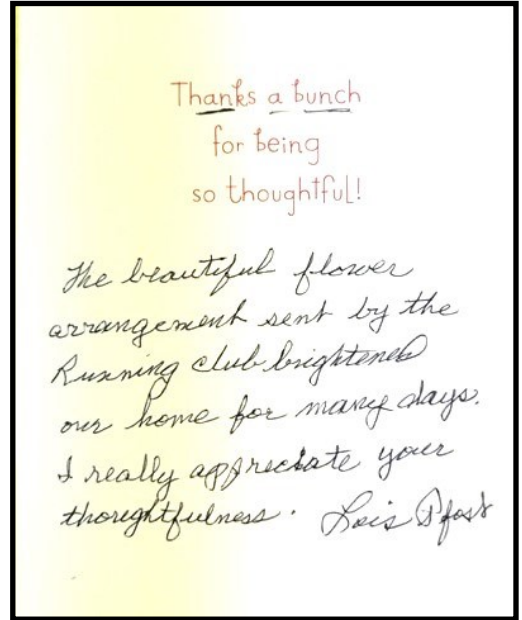 Thanks a bunch
for being
so thoughtful!
The beautiful flower
arrangement sent by the
Running club brightened
our home for many days.
I really appreciate your
thoughtfulness. Lois Pfost